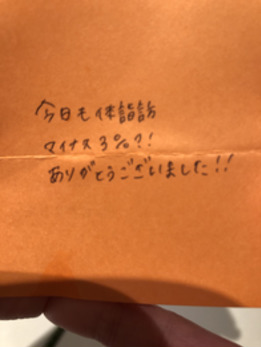 今日も体詣訪
マイナス3%?!
ありがとうございました!!